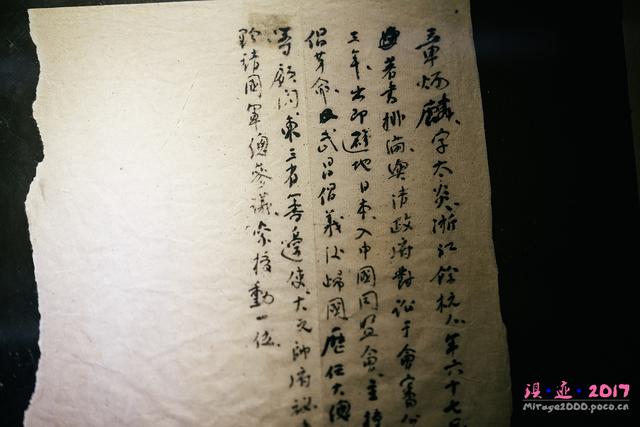 章炳麟字太炎浙江餘杭人年六十七
著書排滿與清政府對訟于會審公
三年出即避地日本入中國同盟會主持
倡革命武昌倡義後歸國歷任大總
等顧問東三省籌邊使大元帥府祕
聆請國軍總參議榮授勳一位
浿·迹·2017
Mirage2000.poco.cn